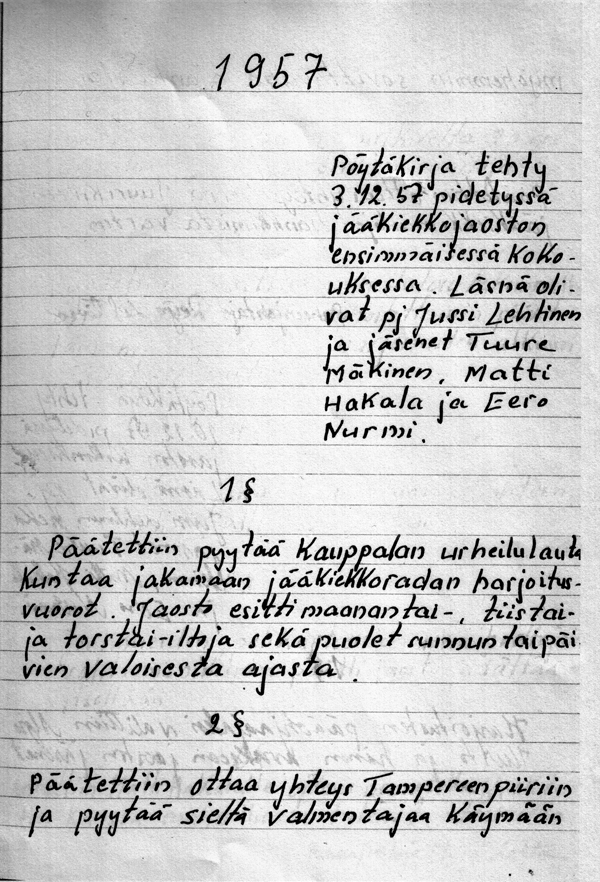 1957
Pöytäkirja tehty
3.12.57 pidetyssä
jääkiekkojaoston
ensimmäisessä koko-
uksessa. Läsnä oli-
vat pj Jussi Lehtinen
ja jäsenet Tuure
Mäkinen, Matti
Hakala ja Eero
Nurmi.
1 §
Päätettiin pyytää Kauppalan urheilulauta
kuntaa jakamaan jääkiekkoradan harjoitus-
vuorot. Jaosto esitti maanantai-, tiistai-
ja torstai-iltoja sekä puolet sunnuntaipäi
vien valoisesta ajasta.
2 §
Päätettiin ottaa yhteys Tampereenpiiriin
ja pyytää sieltä valmentajaa käymään